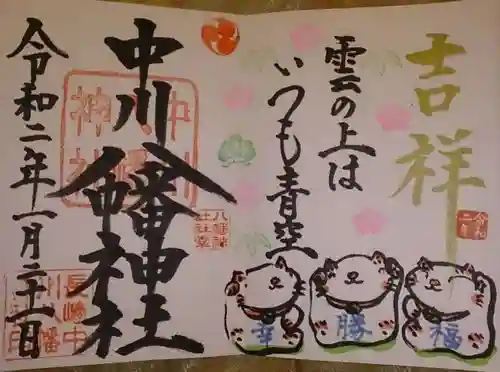 吉祥
雲の上は
いつも青空
中川八幡神社
令和二年一月二十一日
福
勝
幸